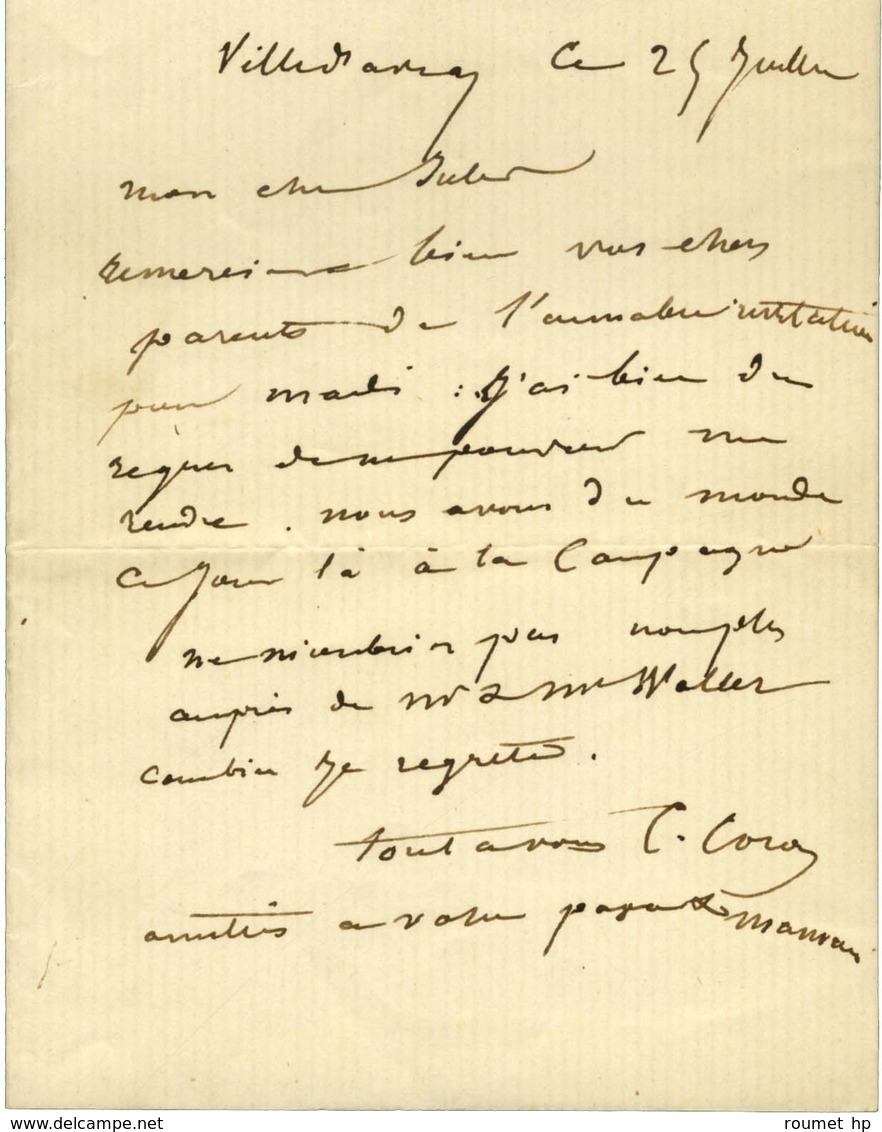 Villedavray Ce 25 Juillet
mon cher Jules
remerciez bien vos chers
parents de l'aimable invitation
pour mardi : J'ai bien du
regret de ne pouvoir me
rendre . nous avons du monde
ce Jour là à la Campagne
ne m'oubliez pas non plus
auprès de Mr & Mme Waller
combien Je regrette .
tout a vous C. Corot
amitiés a votre papa & maman
www.delcampe.net
roumet hp